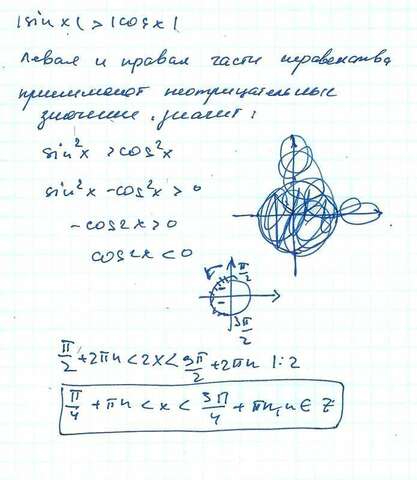 |sin x| > |cos x|
Левая и правая части неравенства
принимают неотрицательные
значение, значит:
sin²x > cos²x
sin²x - cos²x > 0
-cos2x > 0
cos2x < 0
π/2
3π/2
π/2 + 2πn < 2x < 3π/2 + 2πn |:2
π/4 + πn < x < 3π/4 + πn, n ∈ Z